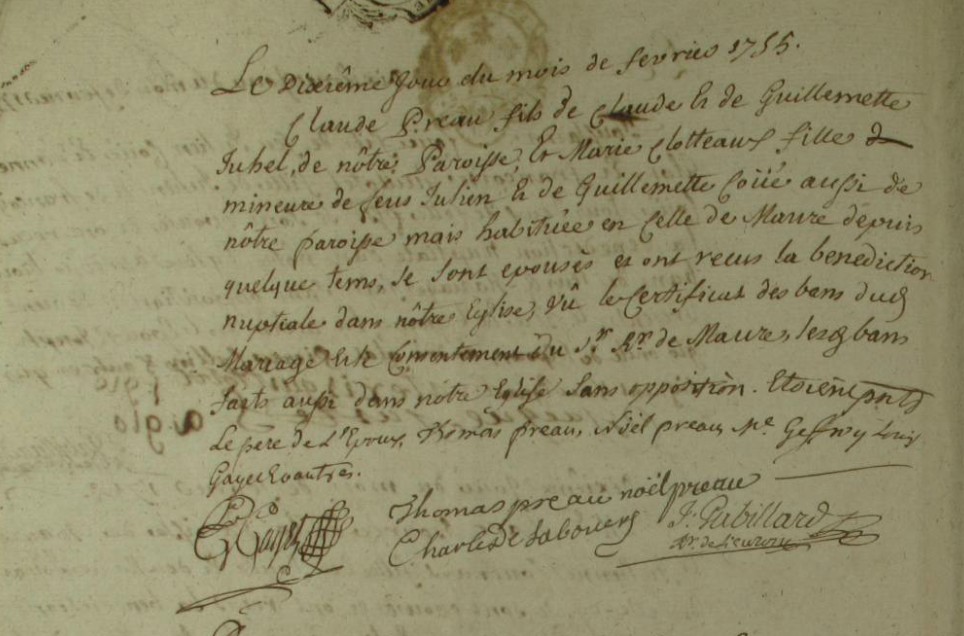 Le Dixiême Jour du mois de fevrier 1755.
Claude Preau fils de Claude Et de Guillemette
Juhel, de nôtre Paroisse, Et Marie Clotteaux fille
mineure de feus Julien Et de Guillemette Coüé aussi de
nôtre paroisse mais habituée en Celle de Maure depuis
quelque tems, se sont epousés et ont recus la benediction
nuptiale dans nôtre Eglise, Vû le Certificat des bans dud
Mariage Et le Consentement du Sr Rr de Maure, lesd bans
faits aussi dans notre Eglise Sans opposition. Etoient pnts
Le pere de L'Epoux, Thomas preau, Noël preau, Me
Et autres.
Thomas preau noël preau
Charles De Labouere J. Gabillard
Rr. de Lieuron